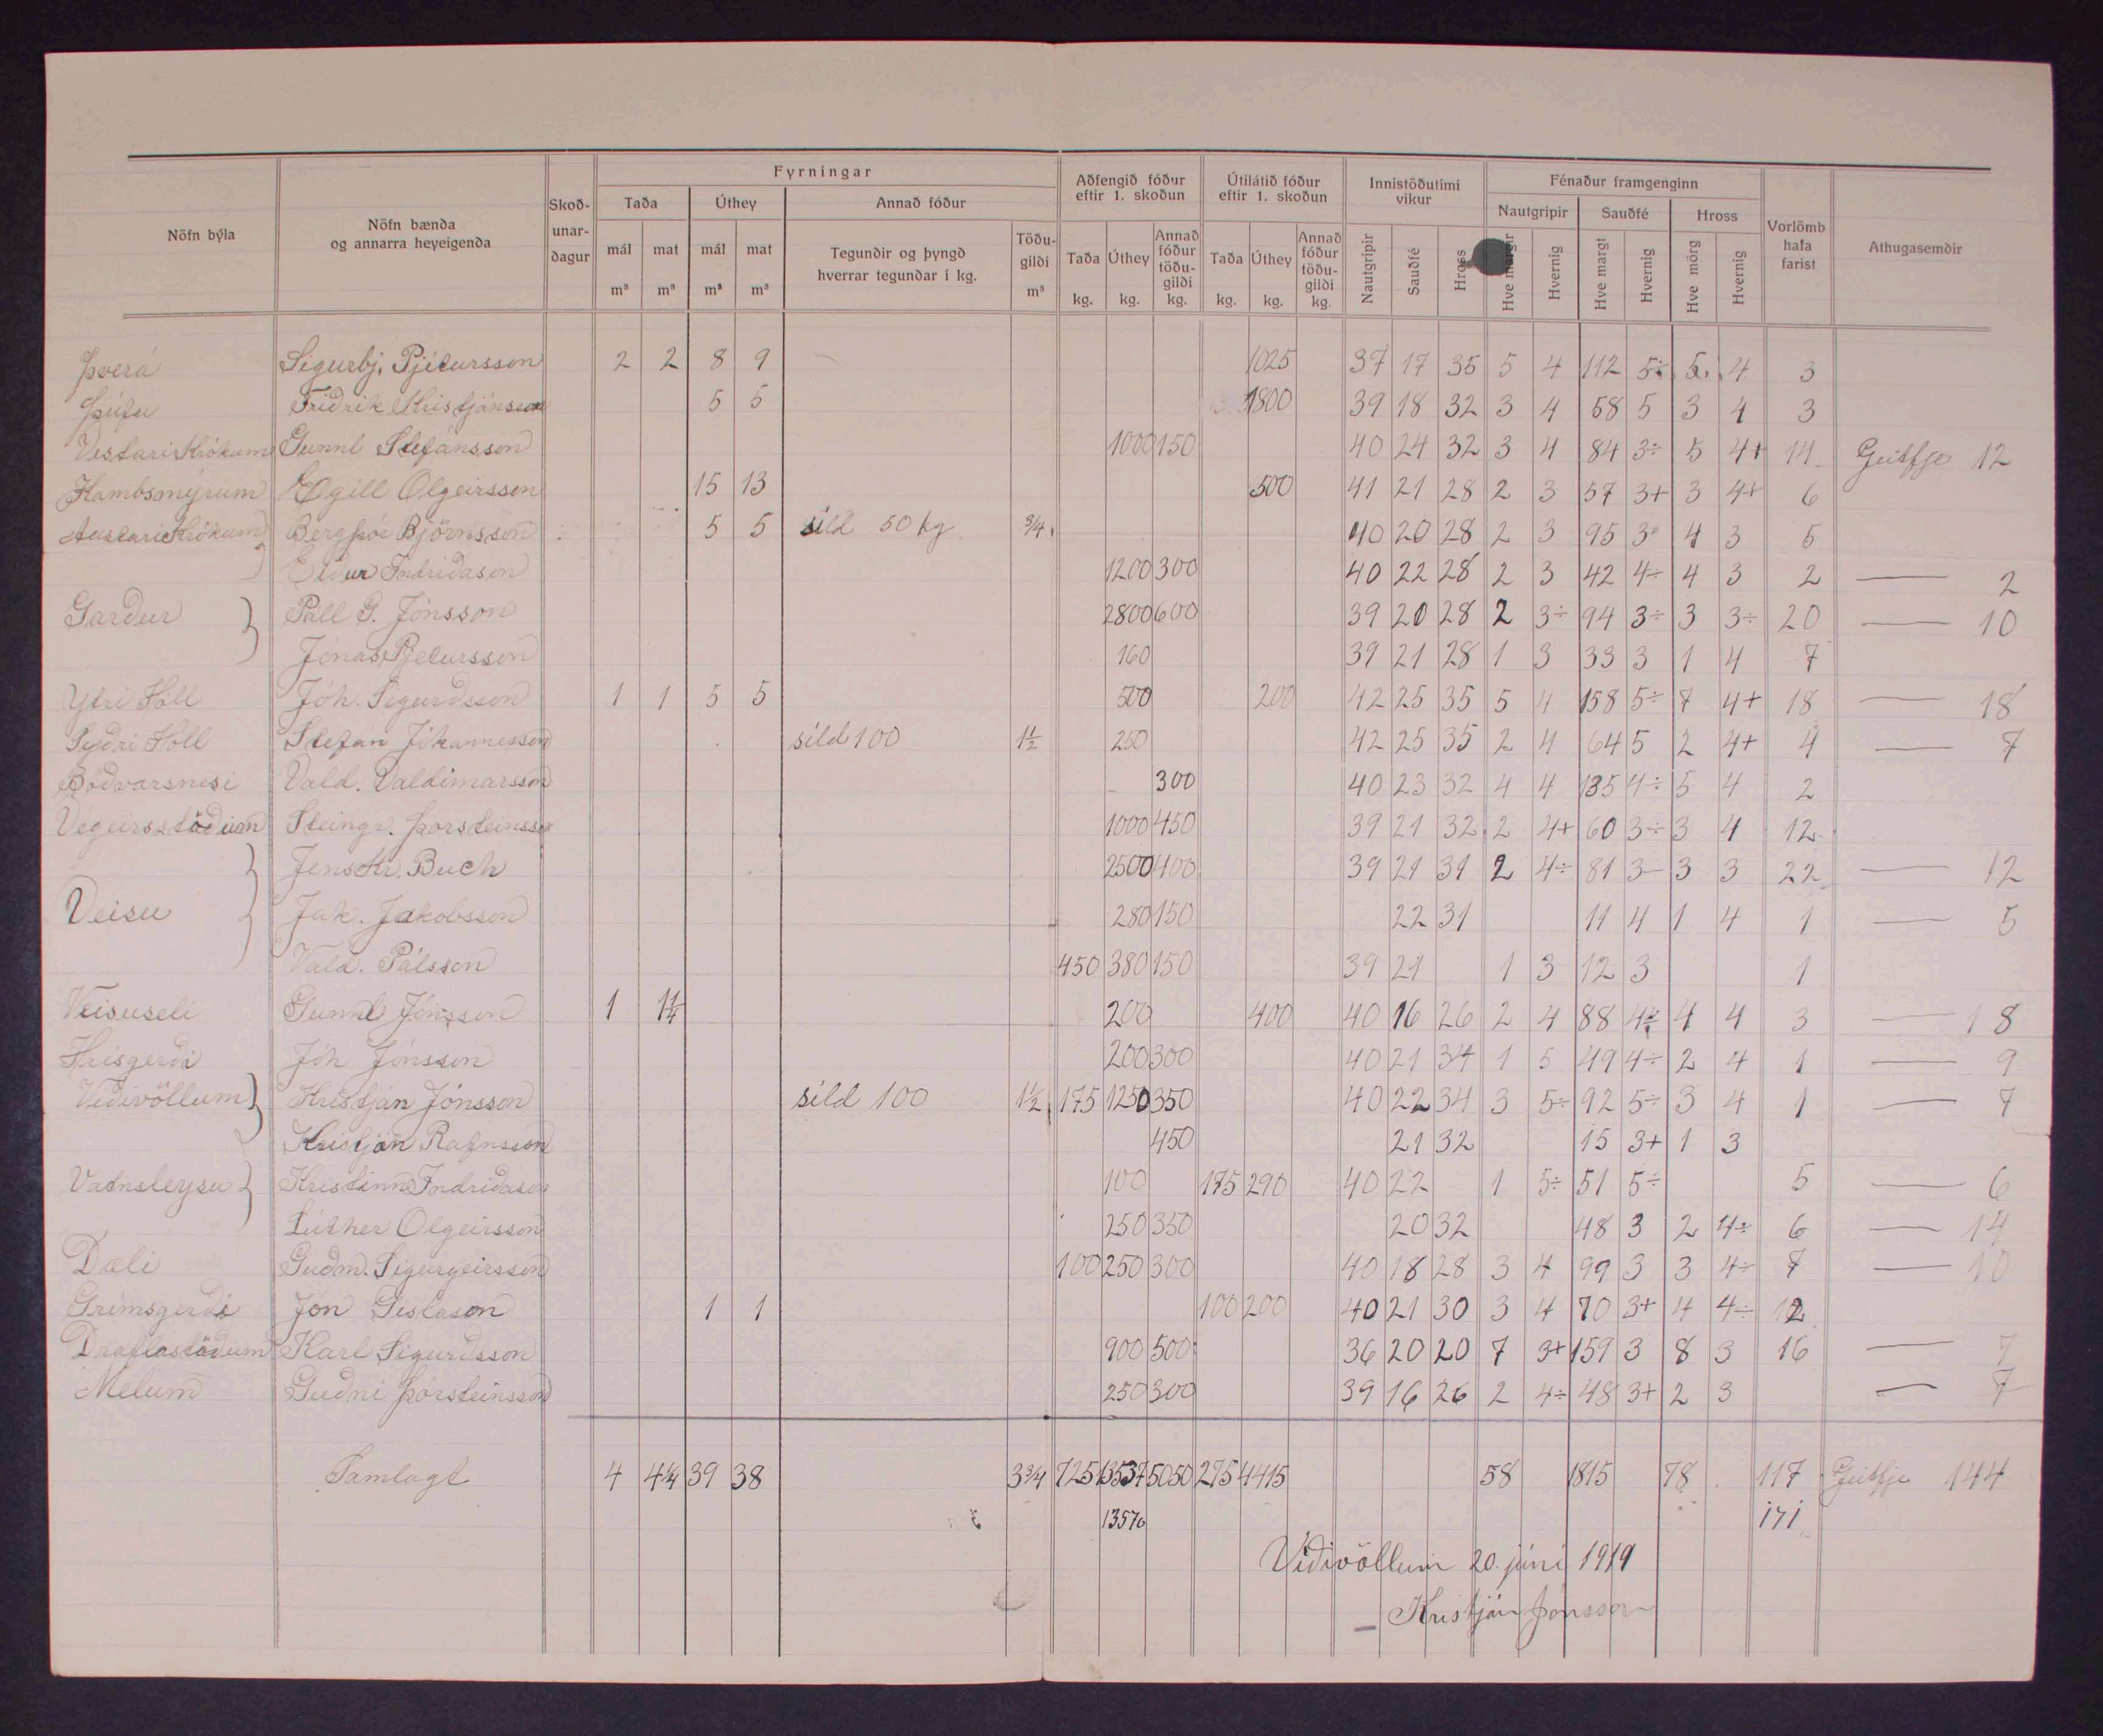 Fyrningar
Aðfengið fóður eftir 1. skoðun
Útilátið fóður eftir 1. skoðun
Innistöðutími vikur
Fénaður framgenginn
Nöfn býla
Nöfn bænda og annarra heyeigenda
Skoð-unar-dagur
Taða Úthey Annað fóður
Nautgripir Sauðfé Hross
Vorlömb hafa farist
Athugasemdir
mál m³ mat m³ mál m³ mat m³
Tegundir og þyngd hverrar tegundar í kg.
Töðu-gildi m³
Taða kg. Úthey kg. Annað fóður töðu-gildi kg.
Taða kg. Úthey kg. Annað fóður töðu-gildi kg.
Nautgripir Sauðfé Hross
Hve margir Hvernig Hve margt Hvernig Hve mörg Hvernig
Þverá Sigurbj. Pjetursson 2 2 8 9 1025 37 17 35 5 4 112 5÷ 5 4 3
Þúfu Friðrik Kristjánsson 5 5 1800 39 18 32 3 4 58 5 3 4 3
Vestari Krókum Gunnl Stefánsson 1000 150 40 24 32 3 4 84 3÷ 5 4+ 14 Geitfje 12
Kambsmýrum Egill Olgeirsson 15 13 500 41 21 28 2 3 57 3+ 3 4+ 6
Austari Krókum Bergþór Björnsson 5 5 síld 50 kg 3/4 40 20 28 2 3 95 3÷ 4 3 5
Eiður Indriðason 1200 300 40 22 28 2 3 42 4÷ 4 3 2 — 2
Garður } Páll G. Jónsson 2800 600 39 20 28 2 3÷ 94 3÷ 3 3÷ 20 — 10
Jónas Pjetursson 160 39 21 28 1 3 33 3 1 4 7
Ytri Hóll Jóh. Sigurðsson 1 1 5 5 500 200 42 25 35 5 4 158 5÷ 7 4+ 18 — 18
Syðri Hóll Stefán Jóhannesson síld 100 1½ 250 42 25 35 2 4 64 5 2 4+ 4 — 7
Böðvarsnesi Vald. Valdimarsson 300 40 23 32 4 4 135 4÷ 5 4 2
Végeirsstöðum Steingr. Þorsteinsson 1000 450 39 21 32 2 4+ 60 3÷ 3 4 12
Jens Kr. Buch 2500 400 39 21 31 2 4÷ 81 3- 3 3 22 — 12
Veisu } Jak. Jakobsson 280 150 22 31 11 4 1 4 1 — 5
Vald. Pálsson 450 380 150 39 21 1 3 12 3 1
Veisuseli Gunnl Jónsson 1 1¼ 200 400 40 16 26 2 4 88 4÷ 4 4 3 — 18
Hrísgerði Jóh Jónsson 200 300 40 21 34 1 5 49 4÷ 2 4 1 — 9
Víðivöllum } Kristján Jónsson síld 100 1½ 175 1250 350 40 22 34 3 5÷ 92 5÷ 3 4 1 — 7
Kristján Rafnsson 450 21 32 15 3+ 1 3
Vatnsleysu } Kristinn Indriðason 100 175 290 40 22 1 5÷ 51 5÷ 5 — 6
Lúther Olgeirsson 250 350 20 32 48 3 2 4÷ 6 — 14
Dæli Guðm. Sigurgeirsson 100 250 300 40 18 28 3 4 99 3 3 4÷ 7 — 10
Grímsgerði Jón Gíslason 1 1 100 200 40 21 30 3 4 70 3+ 4 4÷ 12
Draflastöðum Karl Sigurðsson 900 500 36 20 20 7 3+ 159 3 8 3 16 — 7
Melum Guðni Þorsteinsson 250 300 39 16 26 2 4÷ 48 3+ 2 3 — 7
Samlagt 4 4¼ 39 38 3¾ 725 5050 275 4415 58 1815 78 117 Geitfje 144
13570 171
Víðivöllum 20. júní 1919
Kristján Jónsson